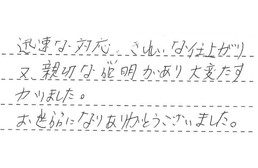 迅速な対応、きれいな仕上がり
又、親切な説明があり大変たす
かりました。
お世話になりありがとうございました。